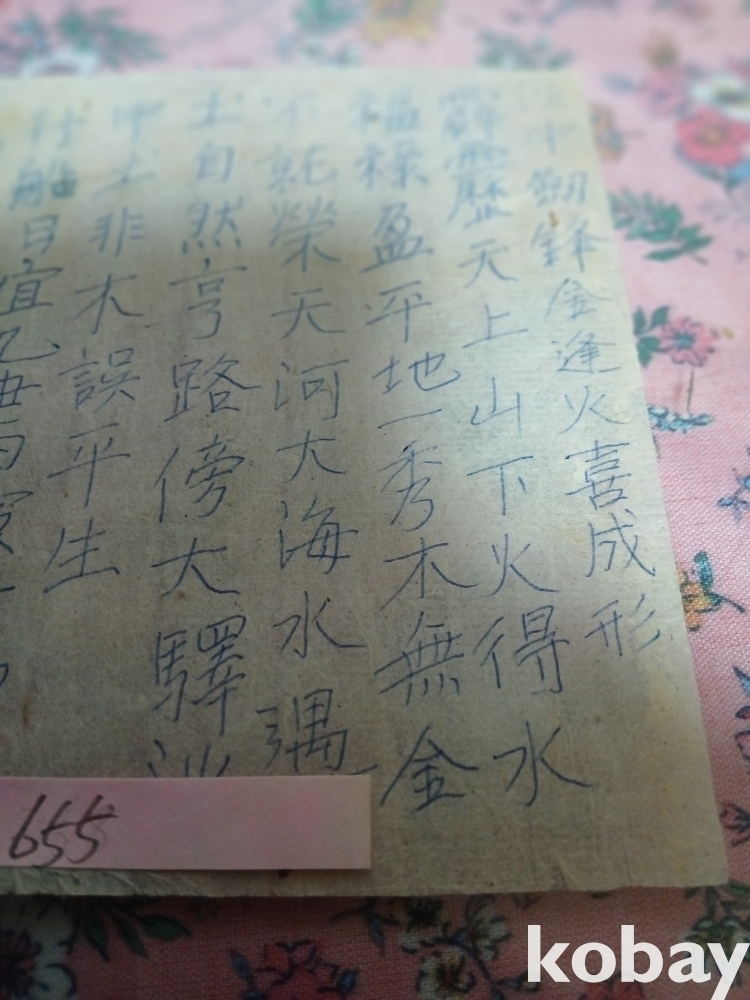 中劒鋒金逢火喜成形
霹靂天上山下火得水
福祿盈平地一秀木無金
不詵榮天河大海水遇
土自然亨路傍大驛
中土非木誤平生
行船日宜乙丑
655
kobay